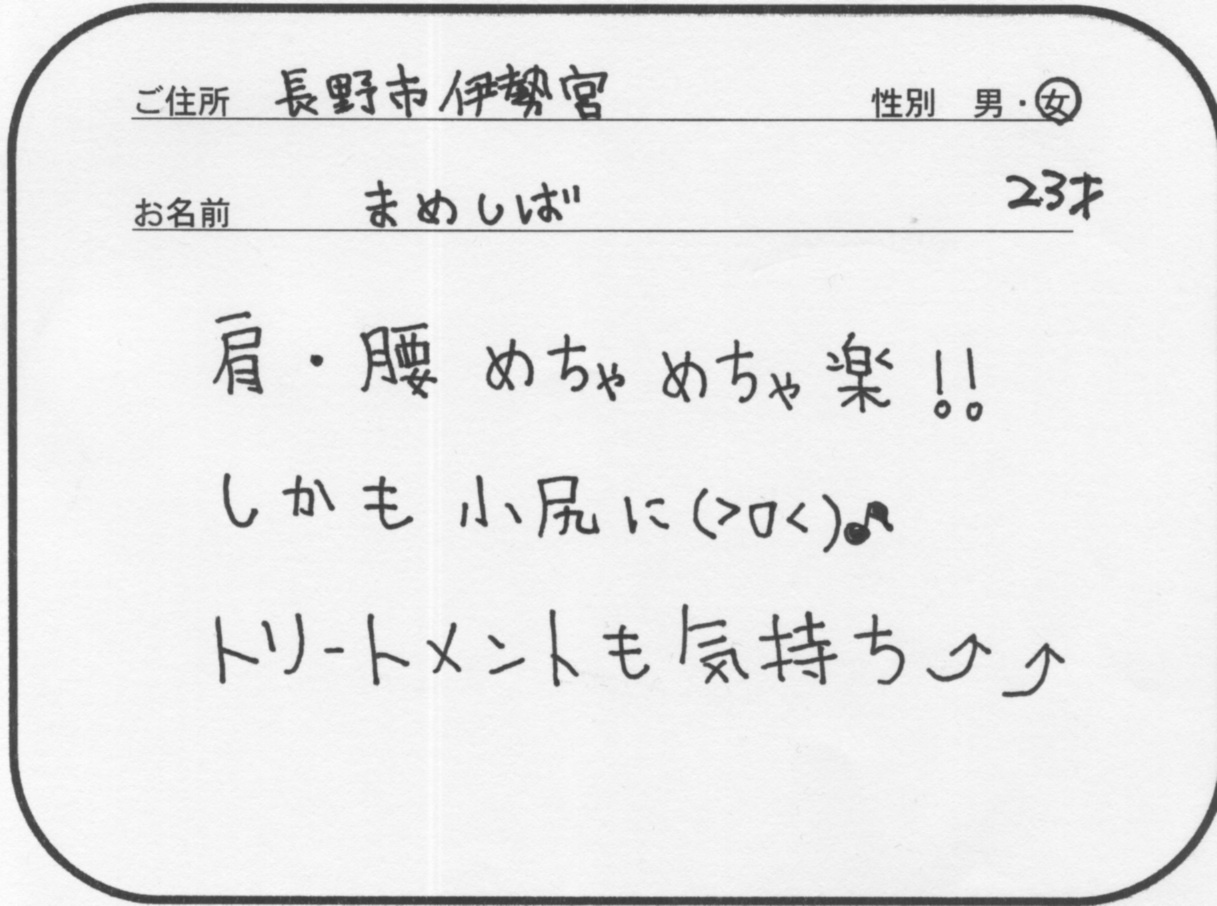 ご住所 長野市伊勢宮 性別 男・女
お名前 まめしば 23才
肩・腰 めちゃめちゃ楽!!
しかも 小尻に(>ロ<)♪
トリートメントも気持ち⤴⤴